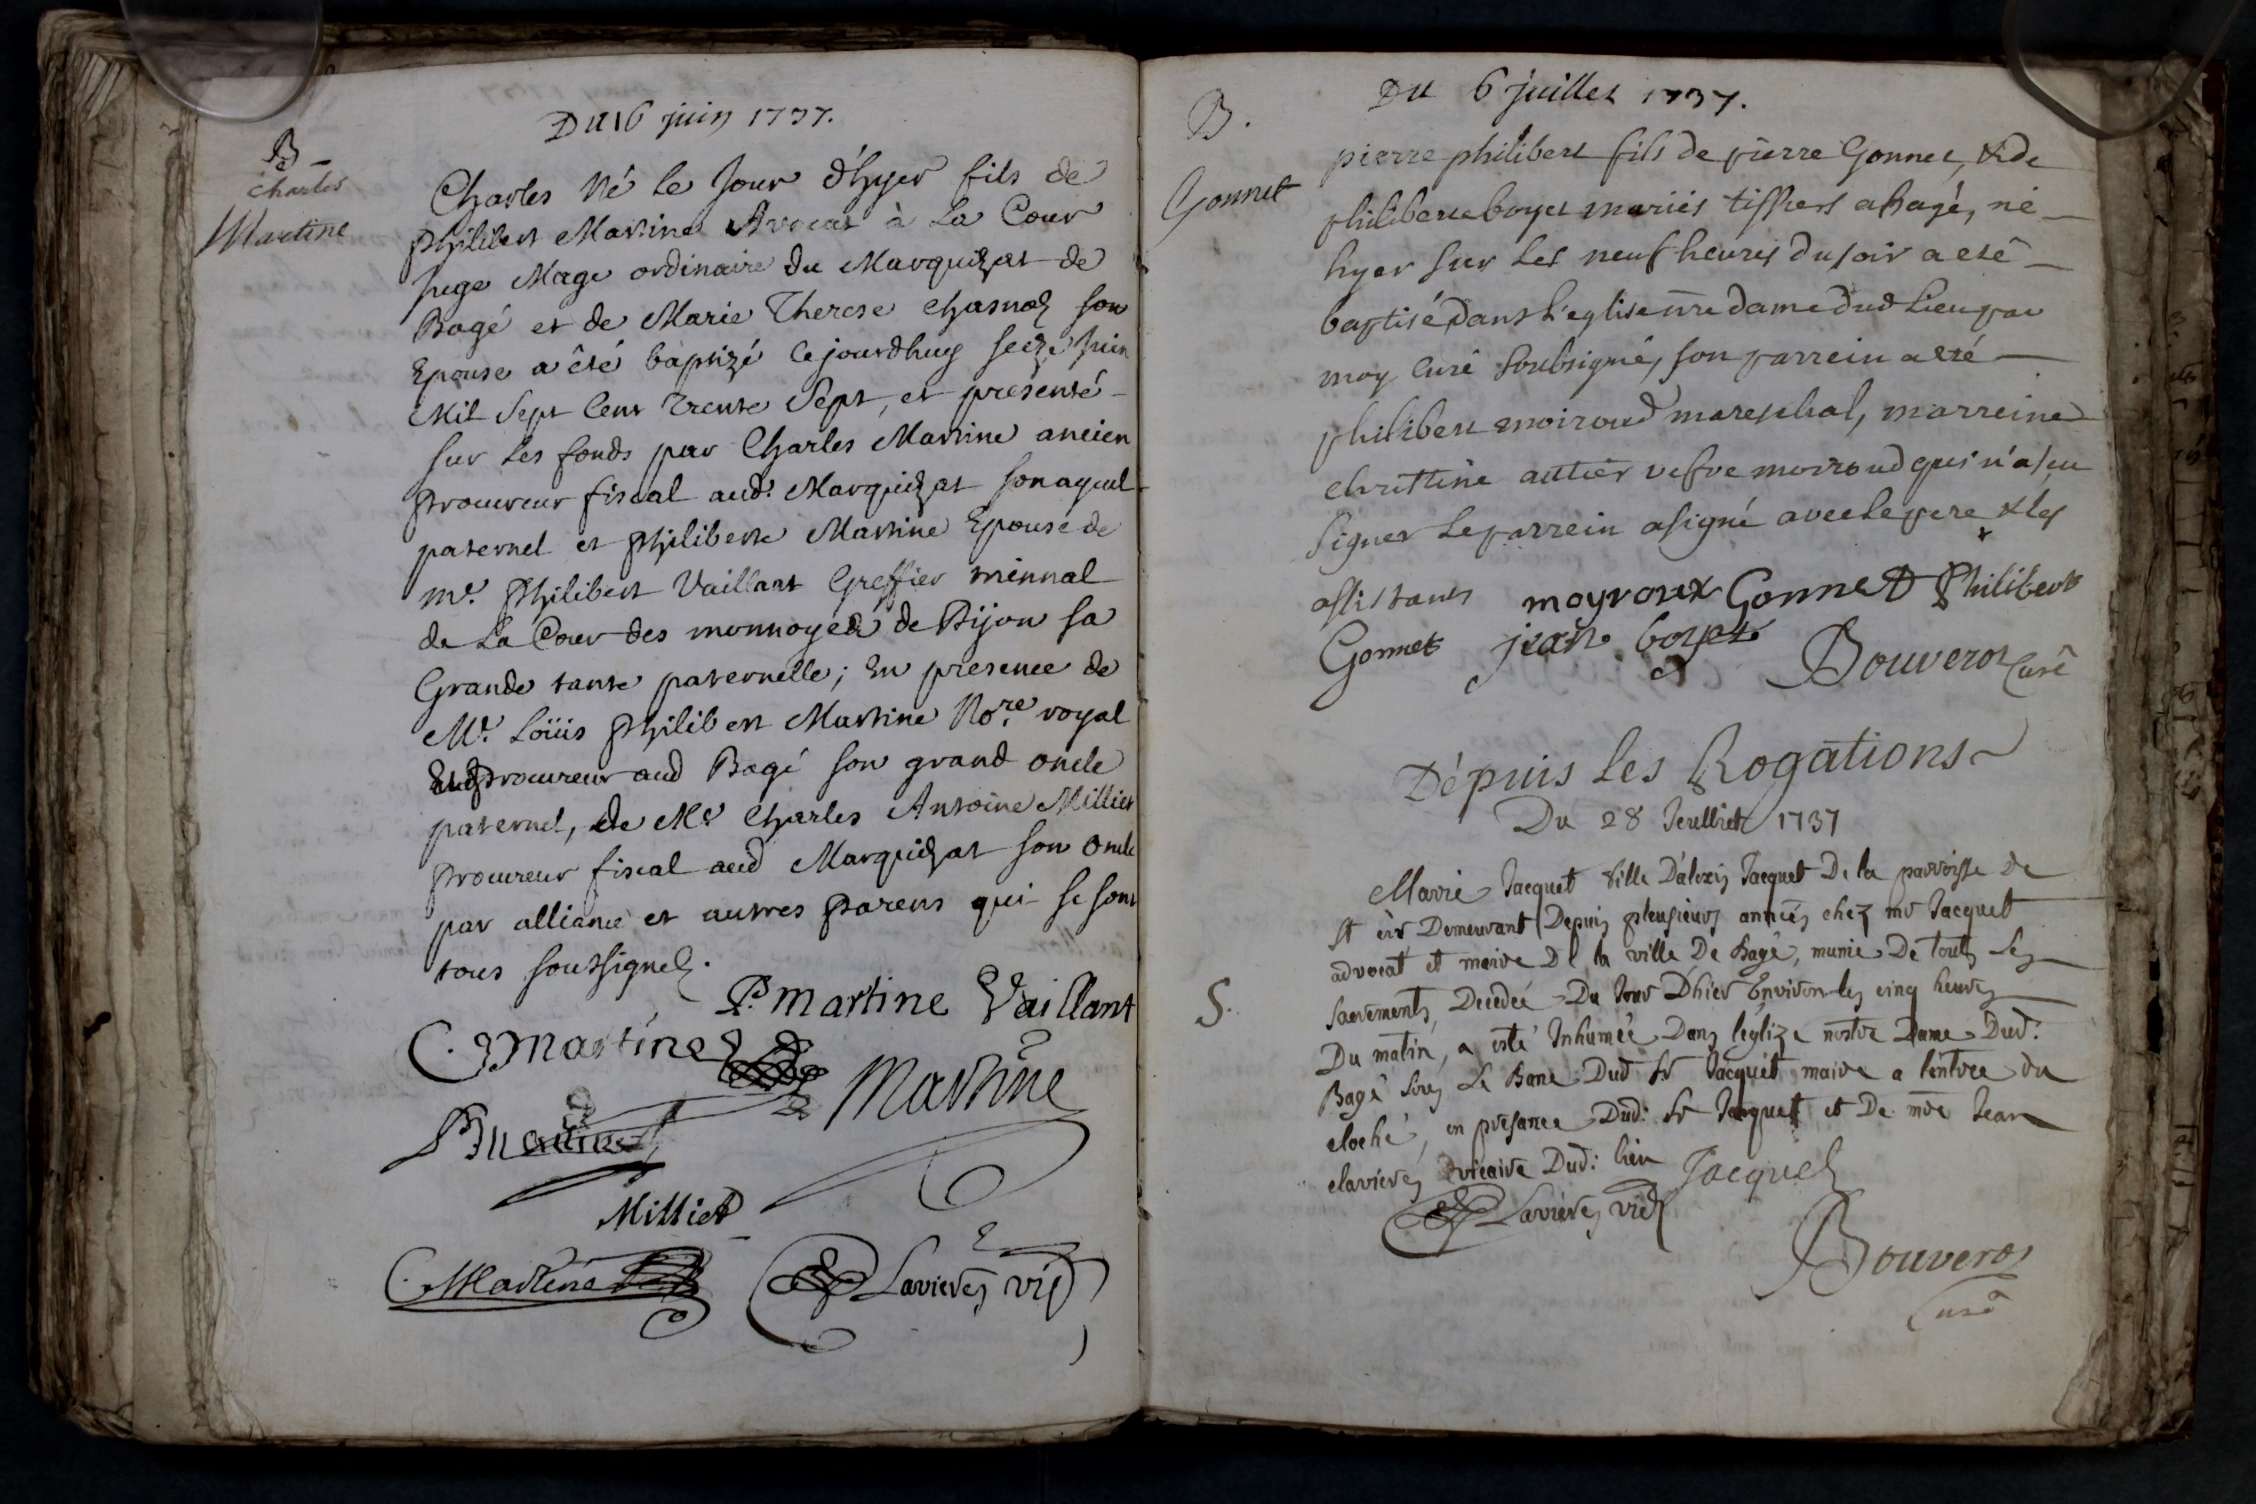 Du 16 juin 1737.
B
charles
Martine
Charles Né le Jour d'hyer fils de
Philibert Martine Avocat à la Cour
Juge Mage ordinaire du Marquizat de
Bagé et de Marie Therese Chasnoz son
Epouse a été baptizé Cejourdhuy seize Juin
Mil Sept Cent Trente Sept, et présenté
sur les fonds par Charles Martine ancien
Procureur fiscal aud. Marquizat son ayeul
paternel et Philiberte Martine Epouse de
me. Philibert Vaillant Greffier
de La Cour des monnoyes de Dijon sa
Grande tante paternelle; En presence de
Me. Loüis Philibert Martine Nore. royal
Et Procureur aud Bagé son grand oncle
paternel, de Me Charles Antoine Milliet
Procureur fiscal aud Marquizat son Oncle
par alliance et autres Parens qui se sont
tous soussignez.
P. martine Vaillant
C. Martine
Martine
Milliet
C. Martine
Clavieres vic
Du 6 juillet 1737.
B.
Gonnet
pierre philibert fils de pierre Gonnet, & de
philiberte boyet mariés tissiers a bagé, né
hyer sur les neuf heures du soir a eté
baptisé dans l'eglise nre dame dud lieu par
moy curé soubsigné, son parrein a eté
philibert moiroud mareschal, marreine
christine autier vefve moiroud qui n'a sçu
signer le parrein a signé avec le pere & les
assistants moyroux Gonnet Philibert
Gonnet jean boyet
Bouverot Curé
Dépuis les Rogations
Du 28 Jeulliet 1737
S.
Marie Jacquet fille D'alexis Jacquet De la parroisse de
st cir Demeurant Depuis pleusieurs années chez mr Jacquet
advocat et maire De la ville De Bagé, munie De touts Les
sacrements, Decedeé Du Jour D'hier Environ les cinq heures
Du matin, a esté Inhumée Dans l'eglize nostre Dame Dud.
Bagé sous Le Banc Dud Sr Jacquet maire a l'entree du
cloché, en presance Dud. Sr Jacquet et De mre Jean
clavieres vicaire Dud. lieu Jacquet
Clavieres vic
Bouverot
Curé